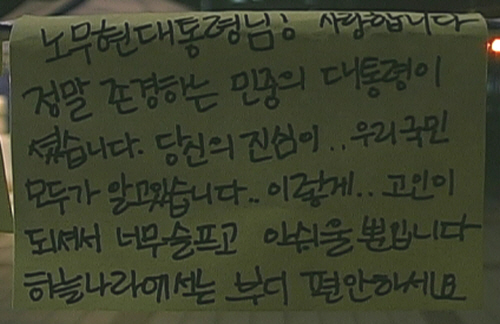 노무현대통령님! 사랑합니다
정말 존경하는 민중의 대통령이
셨습니다. 당신의 진심이.. 우리국민
모두가 알고있습니다.. 이렇게.. 고인이
되셔서 너무슬프고 안쉬울뿐입니다
하늘나라에서는 부디 편안하세요